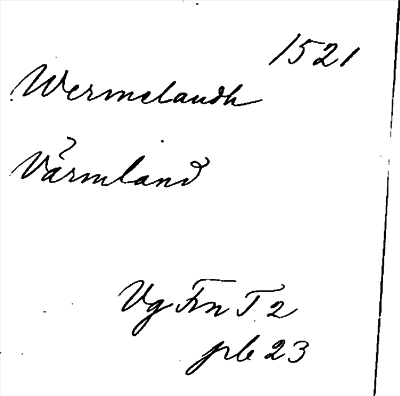 1521
Wermelandh
Värmland
Vg Frn T 2
pb 23